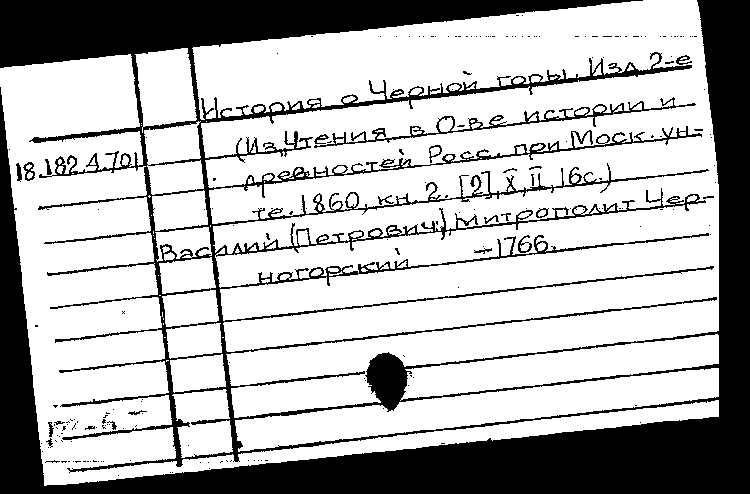 История о Черной горы. Изд 2-е
(Из „Чтения в О-ве истории и
18.182.4.701
древностей Росс. при Моск. ун-
те. 1860, кн. 2. [2], X, II, 16с.)
Василий (Петрович), Митрополит Чер-
ногорский ÷1766.